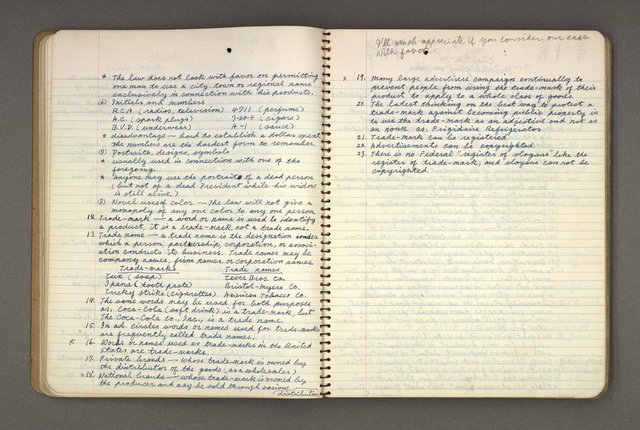 * The law does not look with favor on permitting
one man to use a city, town or regional name
exclusively in connection with his products.
(6) Initials and numbers
R.C.A. (radio, television) 4711 (perfume)
A.C. (spark plugs) 7-20-4 (cigars)
B.V.D. (underwear) A-1 (sauce)
* disadvantage — hard to establish a dollar spent
the numbers are the hardest form to remember.
(7) Portraits, designs, symbols
* usually used in connection with one of the
foregoing.
* Anyone may use the portrait of a dead person
(but not of a dead President while his widow
is still alive.)
(8) Novel uses of color — The law will not give a
monopoly of any one color to any one person
12. Trade-mark — a word or name is used to identify
a product, it is a trade-mark not a trade name.
13. Trade name — a trade name is the designation under
which a person, partnership, corporation, or associ-
ation conducts its business. Trade names may be
company names, firm names, or corporation names
Trade-marks Trade names
Lux (soap) Lever Bros. Co.
Ipana (tooth paste) Bristol-Myers Co.
Lucky strike (cigarettes) American Tobacco Co.
14. The same words may be used for both purposes
as, Coca-Cola (soft drink) is a trade-mark, but
The Coca-Cola Co., Inc., is a trade name.
15. In ad. circles words or names used for trade-marks
are frequently called trade names.
* 16. Words or names used as trade-marks in the United
States are trade-marks.
17. Private brands — whose trade-mark is owned by
the distributor of the goods (as a wholesaler)
18. National brands — whose trade-mark is owned by
the producer and may be sold through various
distributors
I'll much appreciate if you consider our case
with favor.
* 19. Many large advertisers campaign continually to
prevent people from using the trade-mark of their
product to apply to a whole class of goods.
20. The latest thinking on the best way to protect a
trade-mark against becoming public property is
to use the trade-mark as an adjective and not as
an noun. as: Frigidaire Refrigerator.
21. Trade-mark can be registered.
22. Advertisements can be copyrighted.
23. There is no Federal "register of slogans" like the
register of trade-mark, and slogans can not be
copyrighted.